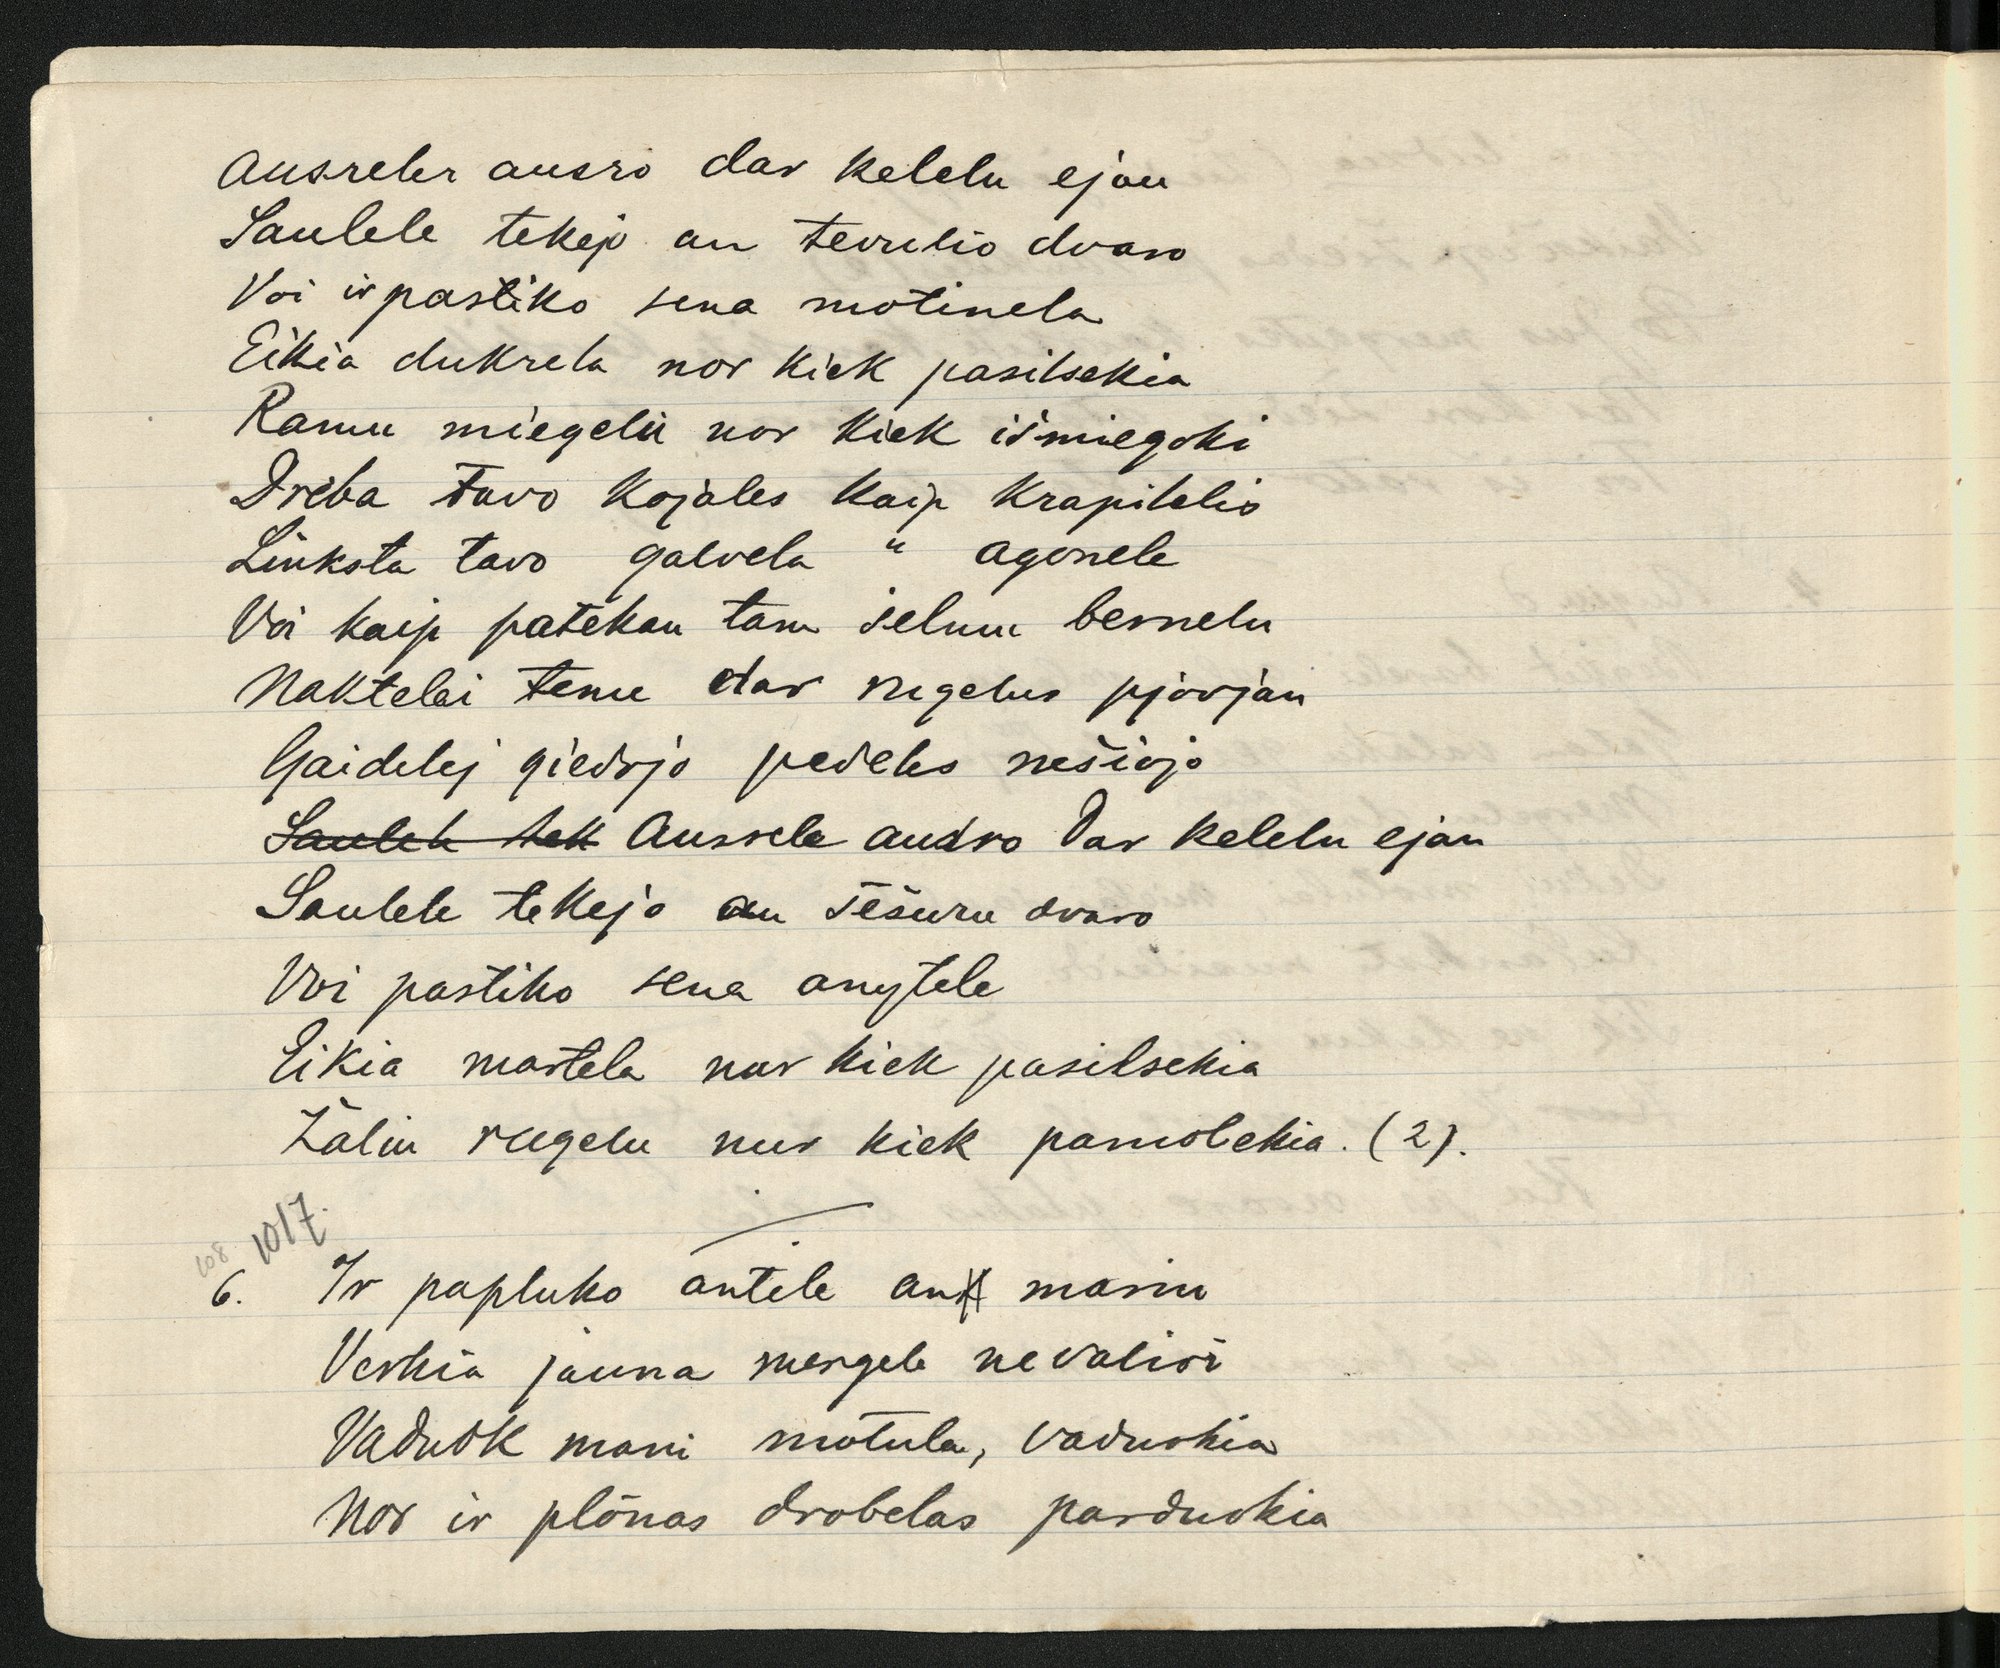 Ausreler ausro dar kelelu ejau
Saulele tekejo an tevulio dvaro
Voi ir pastiko sena motinela
Eikia dukrela nor kiek pasilsekia
Ramu miegelu nor kiek išmiegoki
Drėba tavo kojales kaip krapilelio
Linksta tavo galvela " agonele
Voi kaip patekau tam šelmu bernelu
Naktelei temo dar rugelus pjovjau
Gaidelej giedojo pedeles nešiojo
Saulele tek Aussele ausro dar kelelu ejau
Saulele tekejo an šešuru dvaro
Voi pastiko sena anytele
Eikia martela nor kiek pasilsekia
Žaliu rugelu nur kiek pamolekia. (2).
108 1017.
6. Ir papluko antele an mariu
Verkia jauna mergele nevalioi
Vaduok mani motula, vaduokia
Nor ir plōnas drobelas parduokia